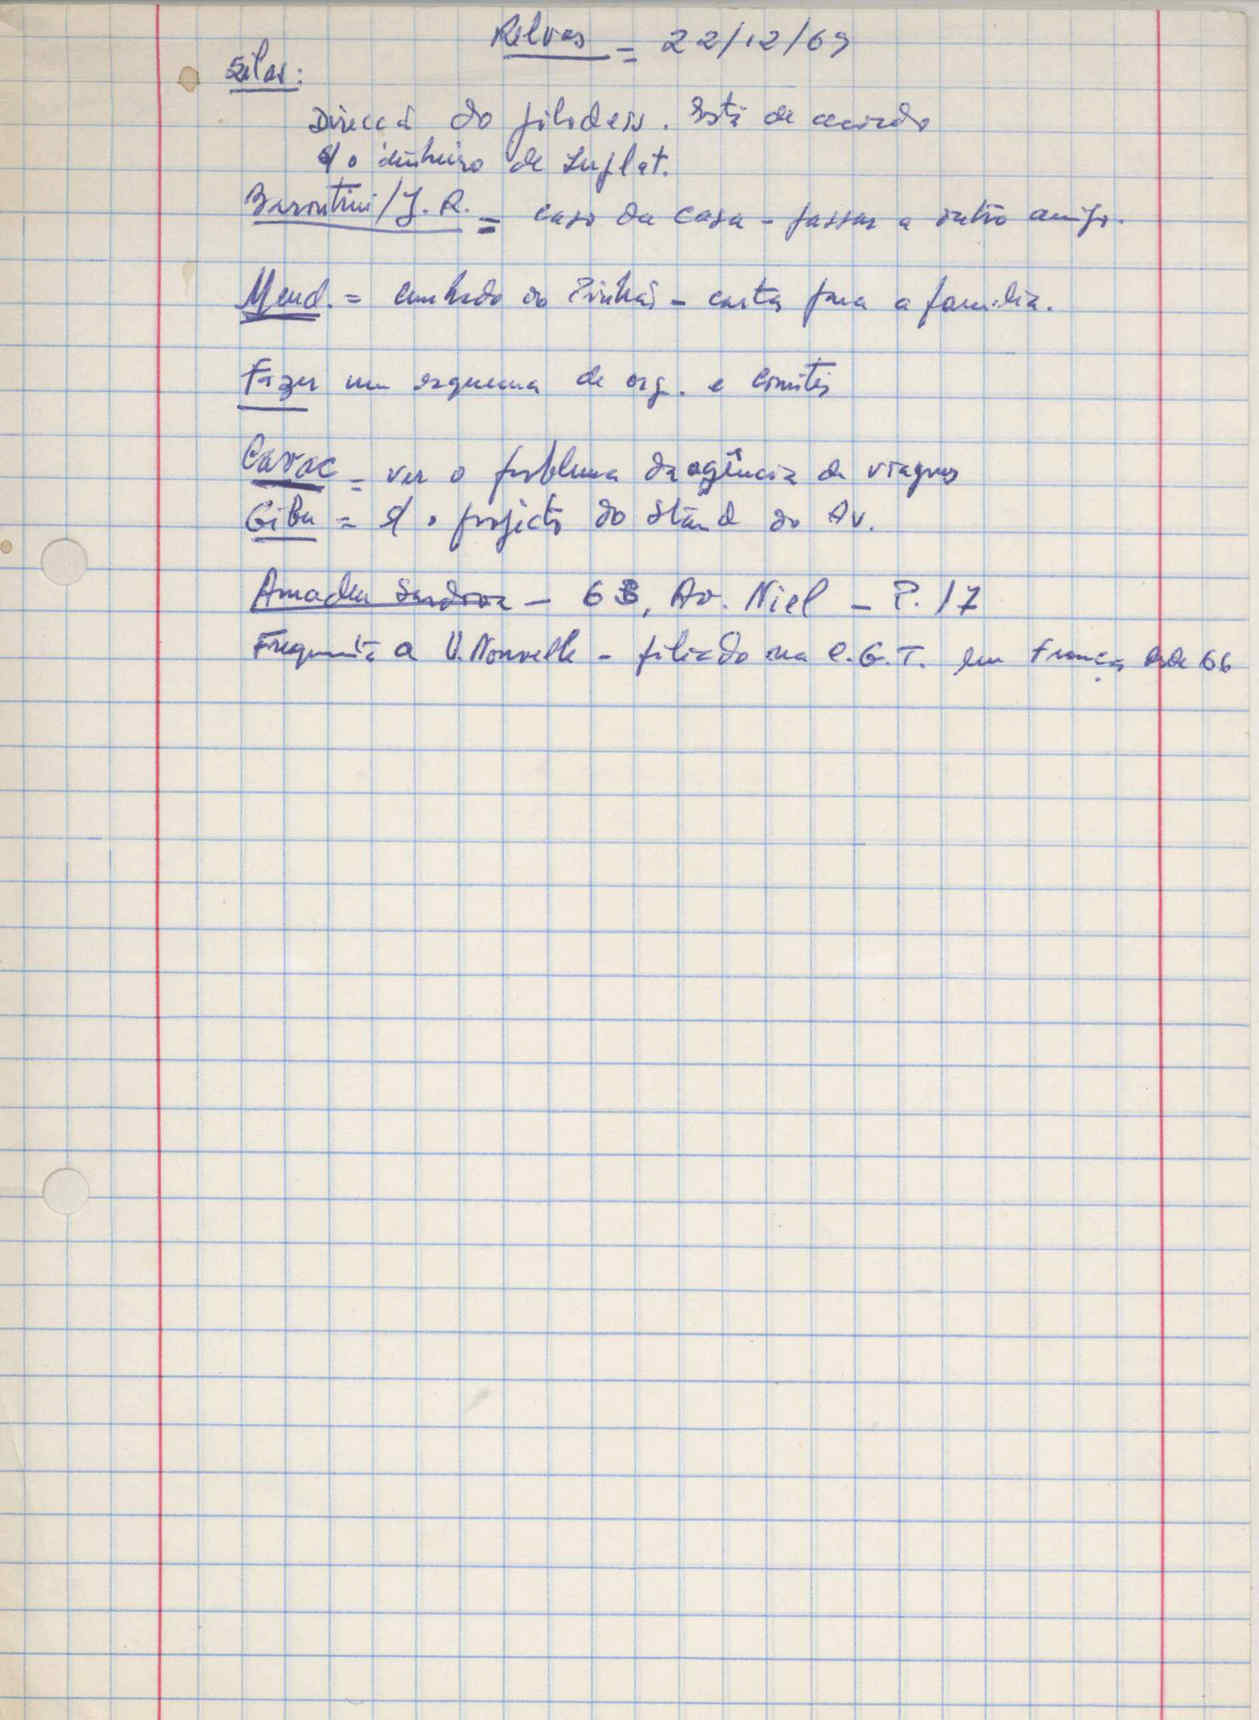 Relvas = 22/12/69
Silas:
Direcção do filodess. Está de acordo
c/ o dinheiro de Suplat.
Barontini/J. R. = caso da casa - passar a outro amigo.
Mend. = cunhado do Pinhão - cartas para a família.
Fazer um esquema de org. e comités
Cavac = ver o problema da agência de viagens
Giba = c/ o projecto do Stand do Av.
Amadeu - 63, Av. Niel - P. 17
Frequenta a U. Nouvelle - filiado na C.G.T. em França desde 66